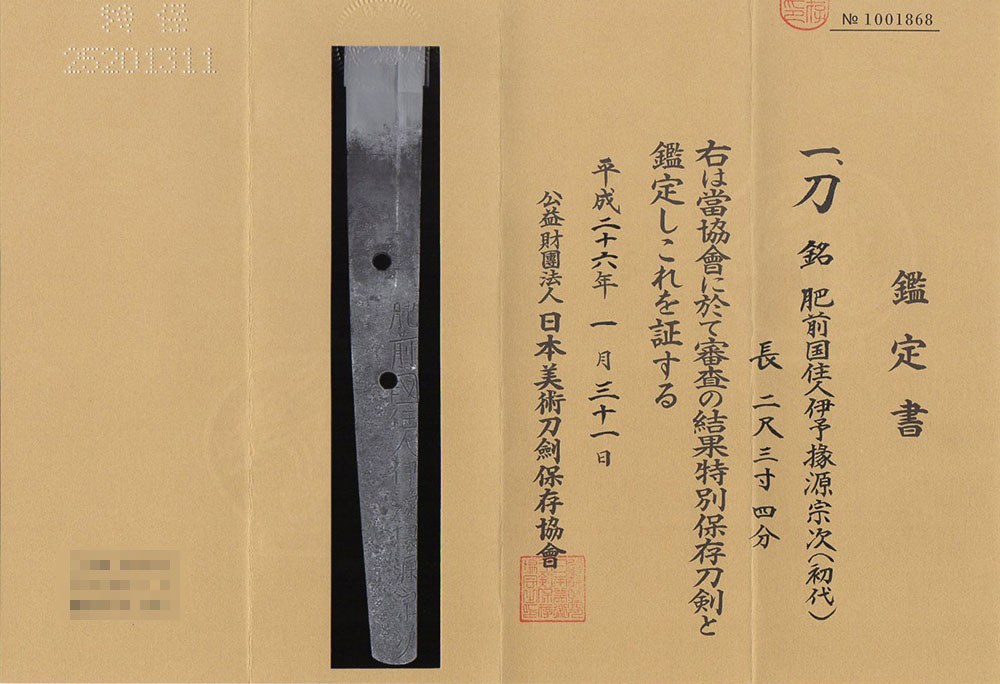 鑑定書
№ 1001868
一、刀 銘 肥前国住人伊予掾源宗次(初代)
長 二尺三寸四分
右は當協會に於て審査の結果特別保存刀剣と
鑑定しこれを証する
平成二十六年一月三十一日
公益財團法人日本美術刀劍保存協會
特保
25201311
肥前國住人伊
源